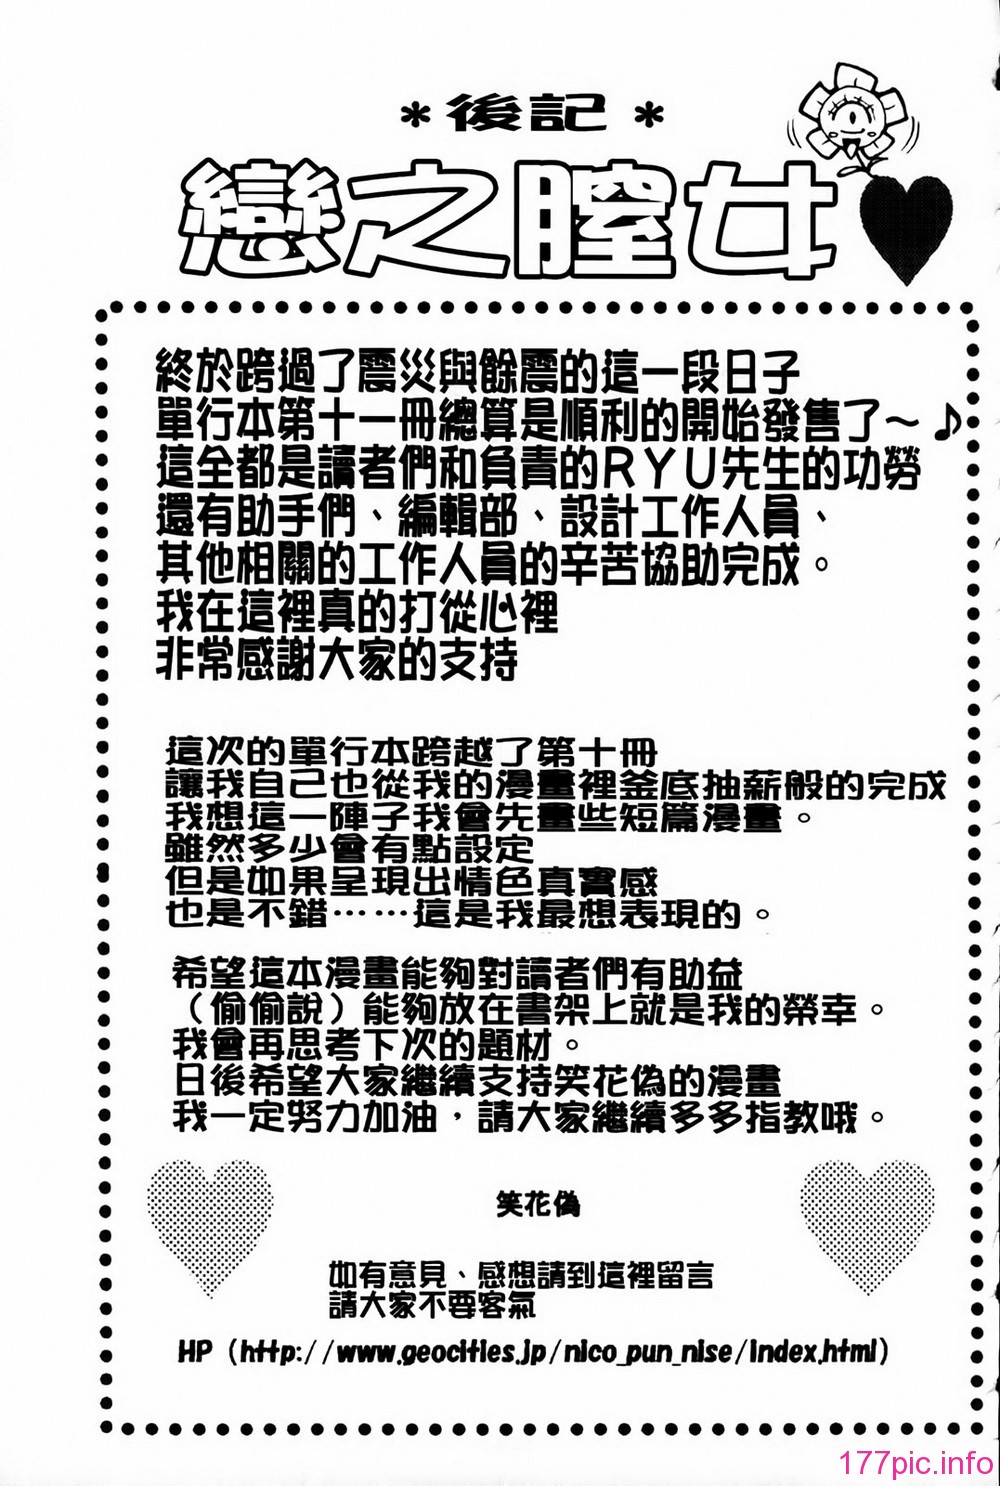 ＊後記＊
戀之膣女
終於跨過了震災與餘震的這一段日子
單行本第十一冊總算是順利的開始發售了～♪
這全都是讀者們和負責的ＲＹＵ先生的功勞
還有助手們、編輯部、設計工作人員、
其他相關的工作人員的辛苦協助完成。
我在這裡真的打從心裡
非常感謝大家的支持
這次的單行本跨越了第十冊
讓我自己也從我的漫畫裡釜底抽薪般的完成
我想這一陣子我會先畫些短篇漫畫。
雖然多少會有點設定
但是如果呈現出情色真實感
也是不錯……這是我最想表現的。
希望這本漫畫能夠對讀者們有助益
（偷偷說）能夠放在書架上就是我的榮幸。
我會再思考下次的題材。
日後希望大家繼續支持笑花偽的漫畫
我一定努力加油，請大家繼續多多指教哦。
笑花偽
如有意見、感想請到這裡留言
請大家不要客氣
HP（http://www.geocities.jp/nico_pun_nise/index.html）
177pic.info